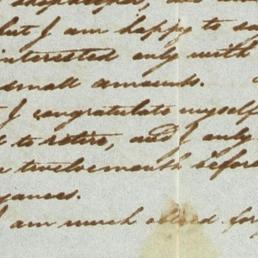 but I am happy to say
interested only with
small amounts.
I congratulate myself
to retire, and I only
twelvemonth before
I am much obliged for